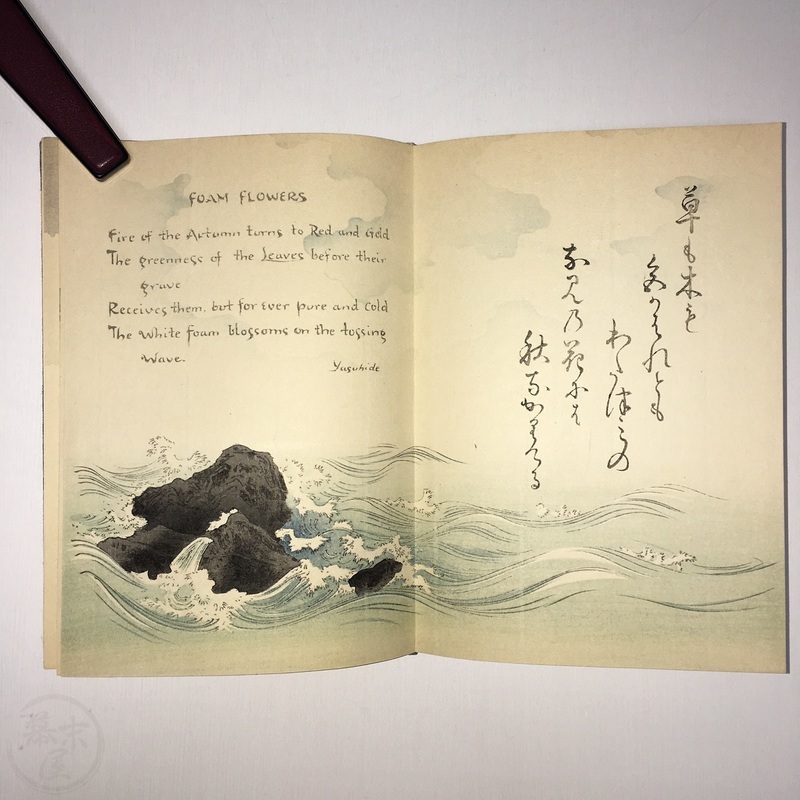 FOAM FLOWERS
Fire of the Autumn turns to Red and Gold
The greenness of the Leaves before their
grave
Receives them, but for ever pure and cold
The white foam blossoms on the tossing
Wave.
Yasuhide
草も木も
色かはれとも
わたつミの
な見乃花にそ
秋なかりける
幕末屋